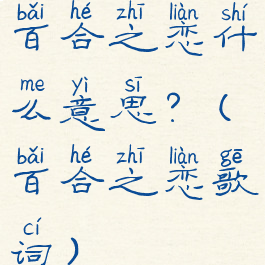 bǎi hé zhī liàn shí
百合之恋什
me yì sī
么意思？（
bǎi hé zhī liàn gē
百合之恋歌
cí
词）